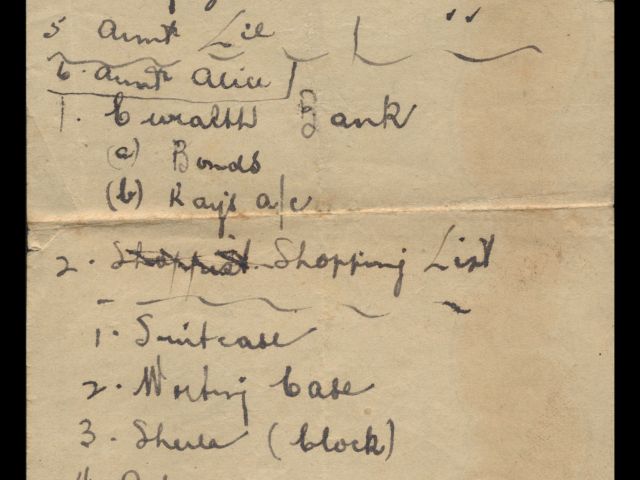 5 Aunt Lil
6. Aunt Alice
1. C'wealth Bank
(a) Bonds
(b) Kay's a/c
2. Shopping List
1. Suitcase
2. Writing Case
3. Sheila (Clock)